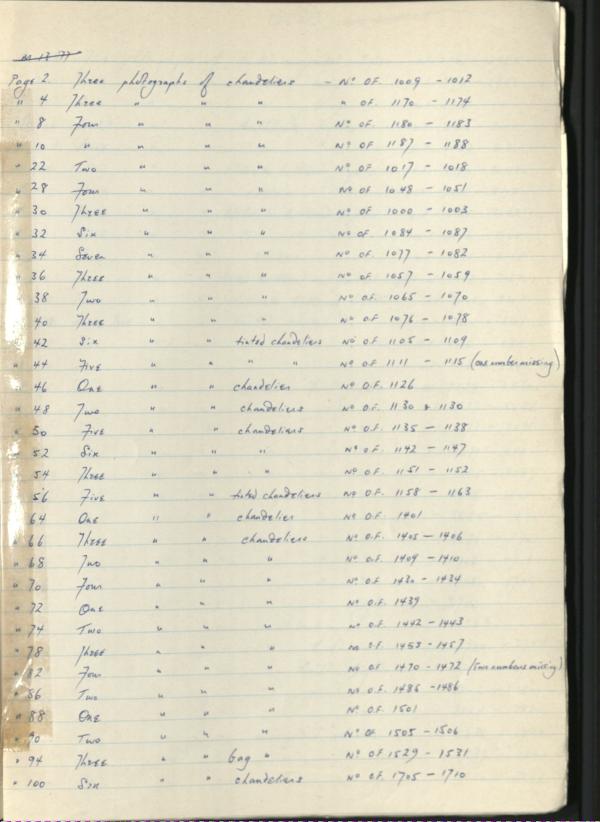 Page 2 Three photographs of chandeliers - No OF. 1009 - 1012
" 4 Three " " " " OF. 1170 - 1174
" 8 Four " " " No OF. 1180 - 1183
" 10 " " " " No OF. 1187 - 1188
" 22 Two " " " No OF 1017 - 1018
" 28 Four " " " No OF 1048 - 1051
" 30 Three " " " No OF 1000 - 1003
" 32 Six " " " No OF 1084 - 1087
" 34 Seven " " " No OF. 1077 - 1082
" 36 Three " " " No OF 1057 - 1059
" 38 Two " " " No OF. 1065 - 1070
" 40 Three " " " No OF 1076 - 1078
" 42 Six " " tinted chandeliers No OF 1105 - 1109
" 44 Five " " " " No OF 1111 - 1115 (one number missing)
" 46 One " " chandelier No O.F. 1126
" 48 Two " " chandeliers No OF. 1130 & 1130
" 50 Five " " chandeliers No OF. 1135 - 1138
" 52 Six " " " No OF. 1142 - 1147
" 54 Three " " " No OF. 1151 - 1152
" 56 Five " " tinted chandeliers No OF. 1158 - 1163
" 64 One " " chandelier No O.F. 1401
" 66 Three " " chandeliers No OF. 1405 - 1406
" 68 Two " " " No OF. 1409 - 1410
" 70 Four " " " No OF. 1430 - 1434
" 72 One " " " No O.F. 1439
" 74 Two " " " No OF. 1442 - 1443
" 78 Three " " " No OF. 1453 - 1457
" 82 Four " " " No OF 1470 - 1472 ( numbers missing)
" 86 Two " " " No OF. 1485 - 1486
" 88 One " " " No OF. 1501
" 90 Two " " " No OF. 1505 - 1506
" 94 Three " " bag " No OF 1529 - 1531
" 100 Six " " chandeliers No OF. 1705 - 1710